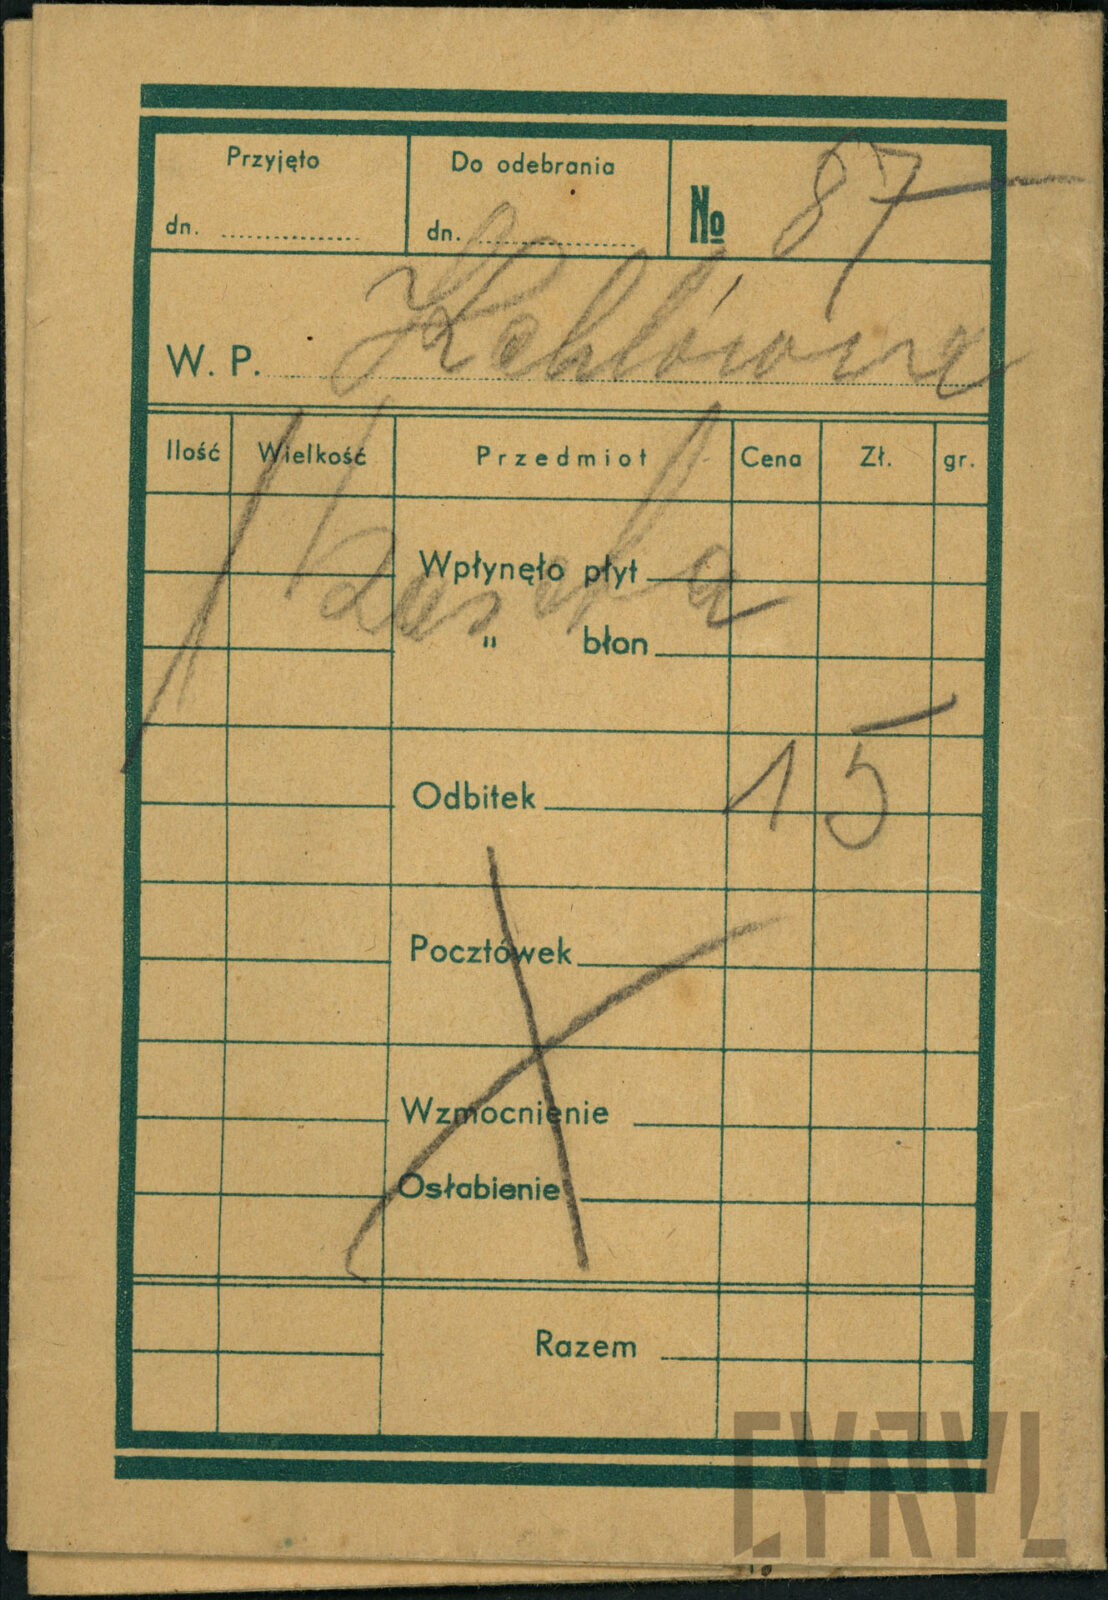 Przyjęto
dn. ..............
Do odebrania
dn. ................
No 87
W. P.
Ilość Wielkość Przedmiot Cena Zł. gr.
Wpłynęło płyt
" błon
15
Odbitek
Pocztówek
Wzmocnienie
Osłabienie
Razem
CYRYL